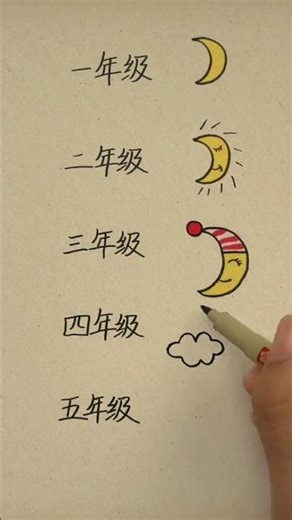 一年级
二年级
三年级
四年级
五年级